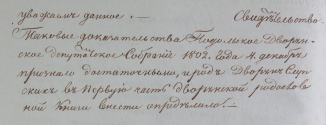 уважаемъ данное. — Свидѣтельство
Таковые доказательства Подольское Дворян-
ское депутатское Собраніе 1802. Года 4. декабря
признало достаточными, и родъ Дворянъ Сут-
скихъ въ Первую часть Дворянской родослов-
ной Книги внести опредѣлило. —